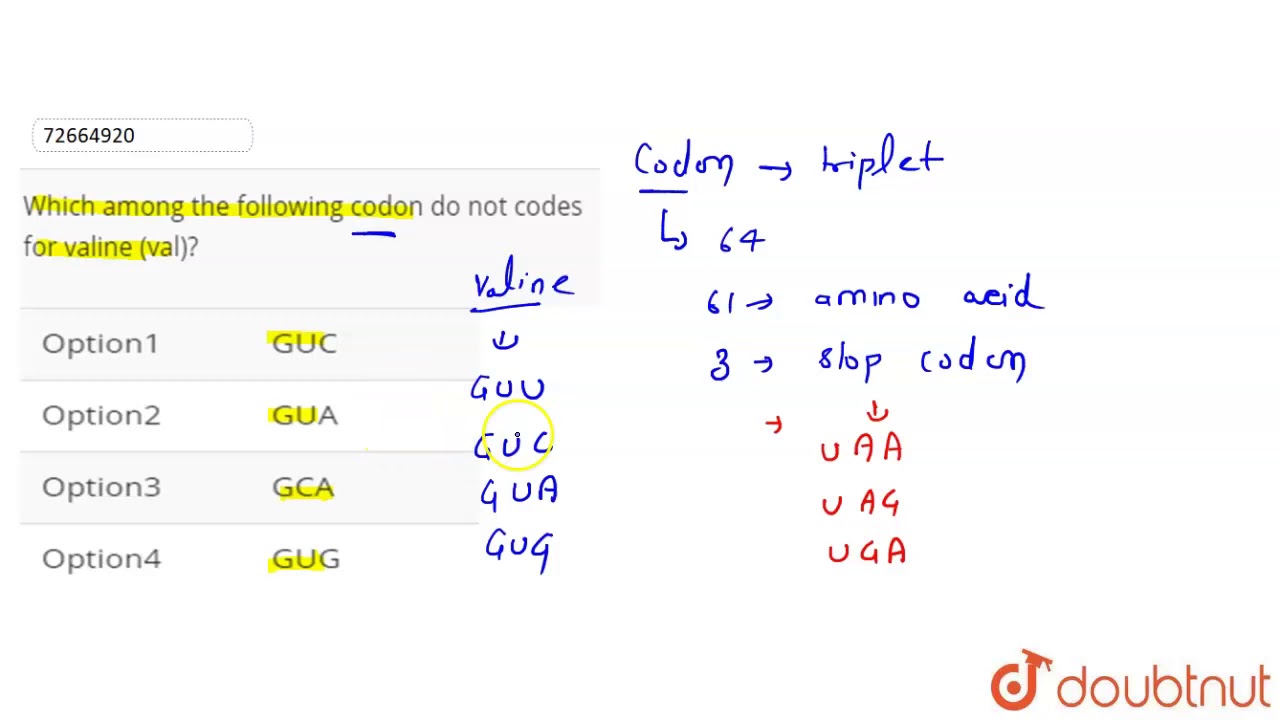 72664920
Which among the following codon do not codes
for valine (val)?
Option1 GUC
Option2 GUA
Option3 GCA
Option4 GUG
Valine
↓
GUU
GUC
GUA
GUG
Codon → triplet
↳ 64
61 → amino acid
3 → stop codon
→ ↓
UAA
UAG
UGA
doubtnut